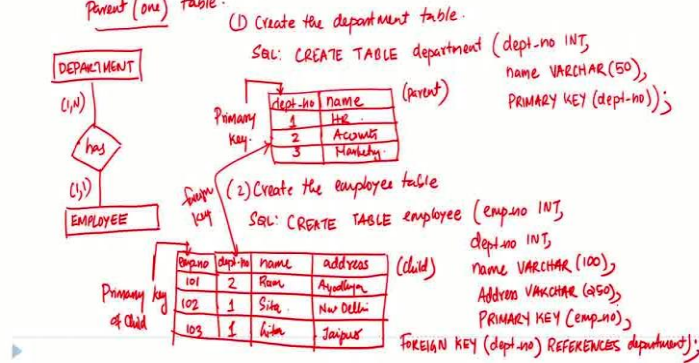 Parent (one) table.
(1) Create the department table.
SQL: CREATE TABLE department (dept-no INT,
name VARCHAR(50),
PRIMARY KEY (dept-no));
DEPARTMENT
(1,N)
has
(1,1)
EMPLOYEE
Primary
key.
dept-no name
1 HR.
2 Accounts
3 Markety.
(parent)
foreign
key
(2) Create the employee table
SQL: CREATE TABLE employee (emp-no INT,
dept-no INT,
name VARCHAR (100),
Address VARCHAR (250),
PRIMARY KEY (emp-no),
FOREIGN KEY (dept-no) REFERENCES department);
Primary key
of Child
empno dept-no name address
101 2 Ram Ayodhya
102 1 Sita. New Delhi
103 1 Jaipur
(child)